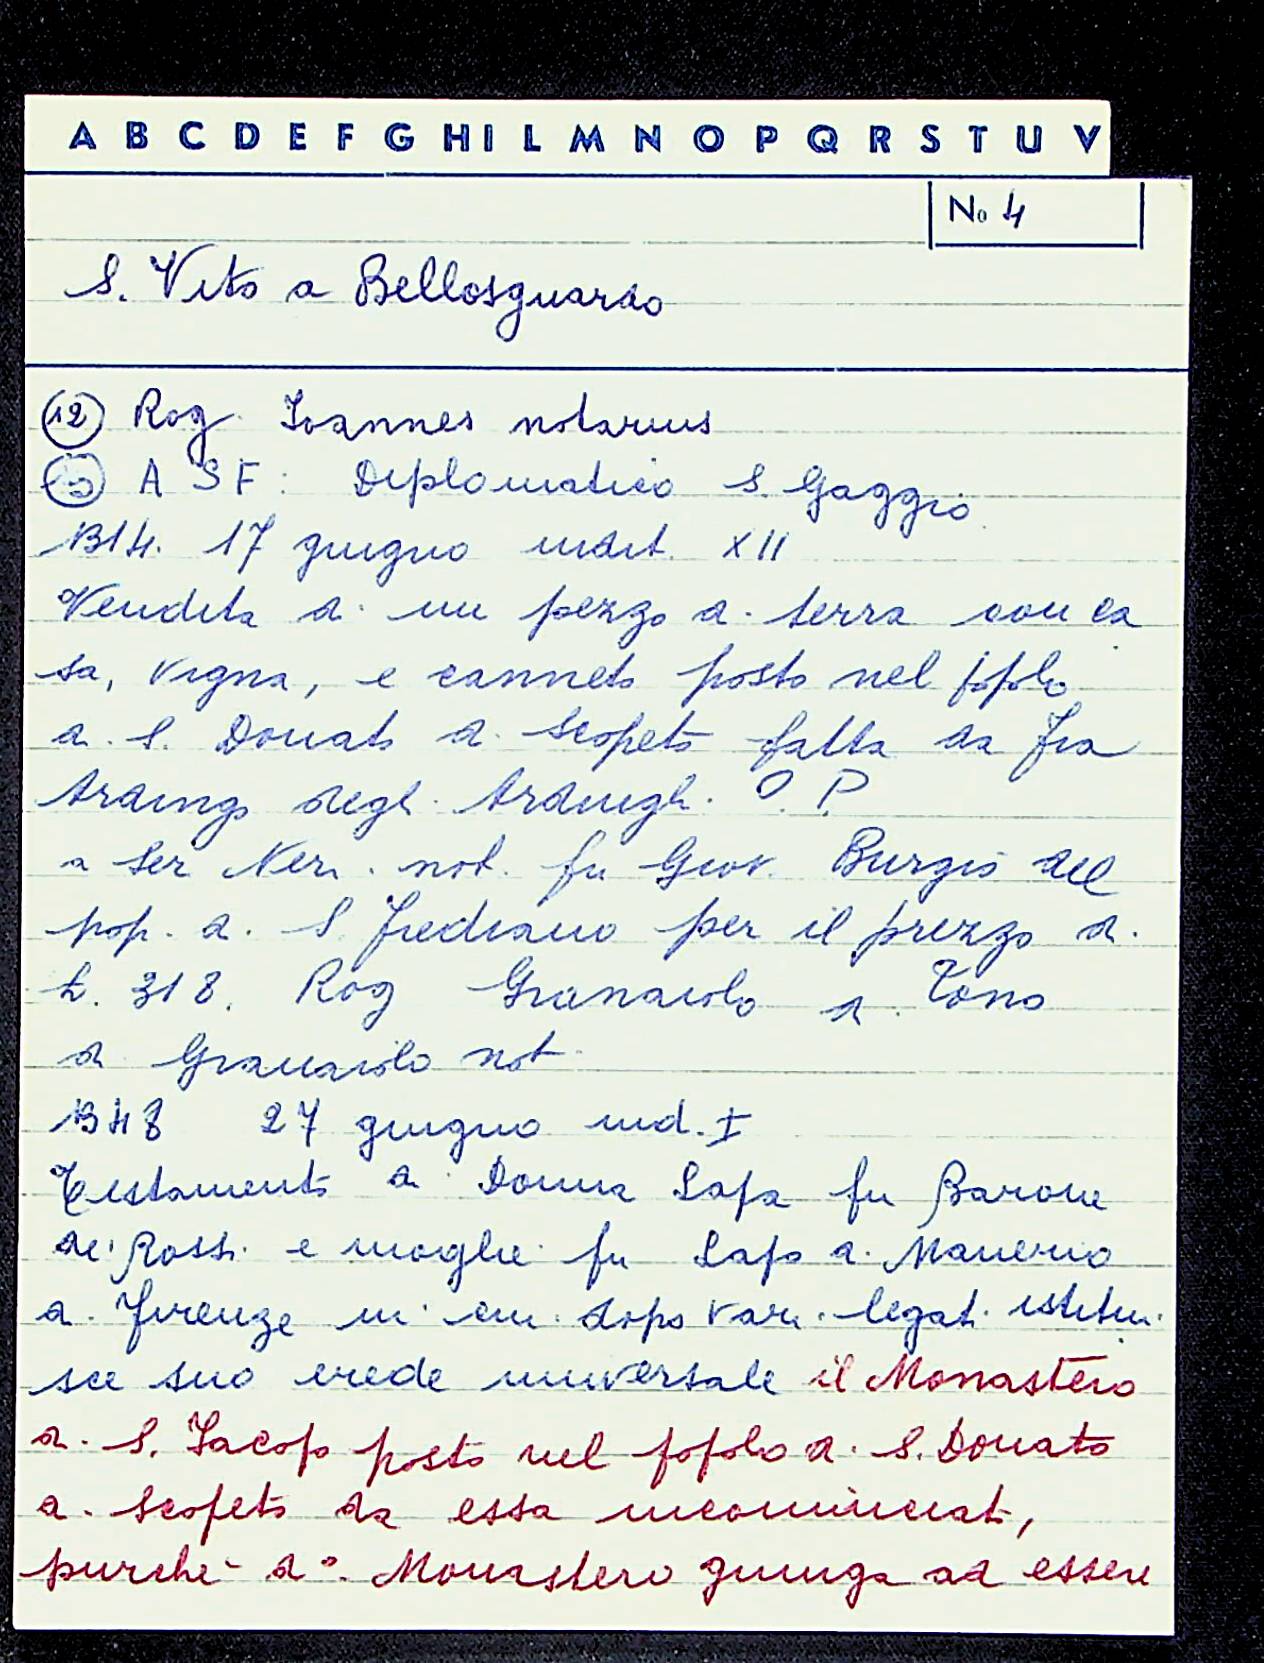 A B C D E F G H I L M N O P Q R S T U V
No 4
S. Vito a Bellosguardo
12 Rog. Ioannes notarius
A S F: Diplomatico S. Gaggio
1314. 17 giugno indit. XII
Vendita di un pezzo di terra con ca
sa, vigna, e canneto posto nel popolo
di S. Donato di Scopeto fatta da fra
Ardingo degli Ardinghi. O. P.
a Ser Neri. not. fu Giov. Burgis del
pop. di S. Frediano per il prezzo di
£. 318. Rog Granaiolo di Tono
di Granaiolo not.
1348 27 giugno ind. I
Testamento di Donna Lapa fu Barone
de' Rossi e moglie fu Lapo di Manerio
di Firenze in cui dopo vari legati istitui
sce suo erede universale il Monastero
di S. Iacopo posto nel popolo di S. Donato
di Scopeto da essa incominciato,
purché do. Monastero giunga ad essere